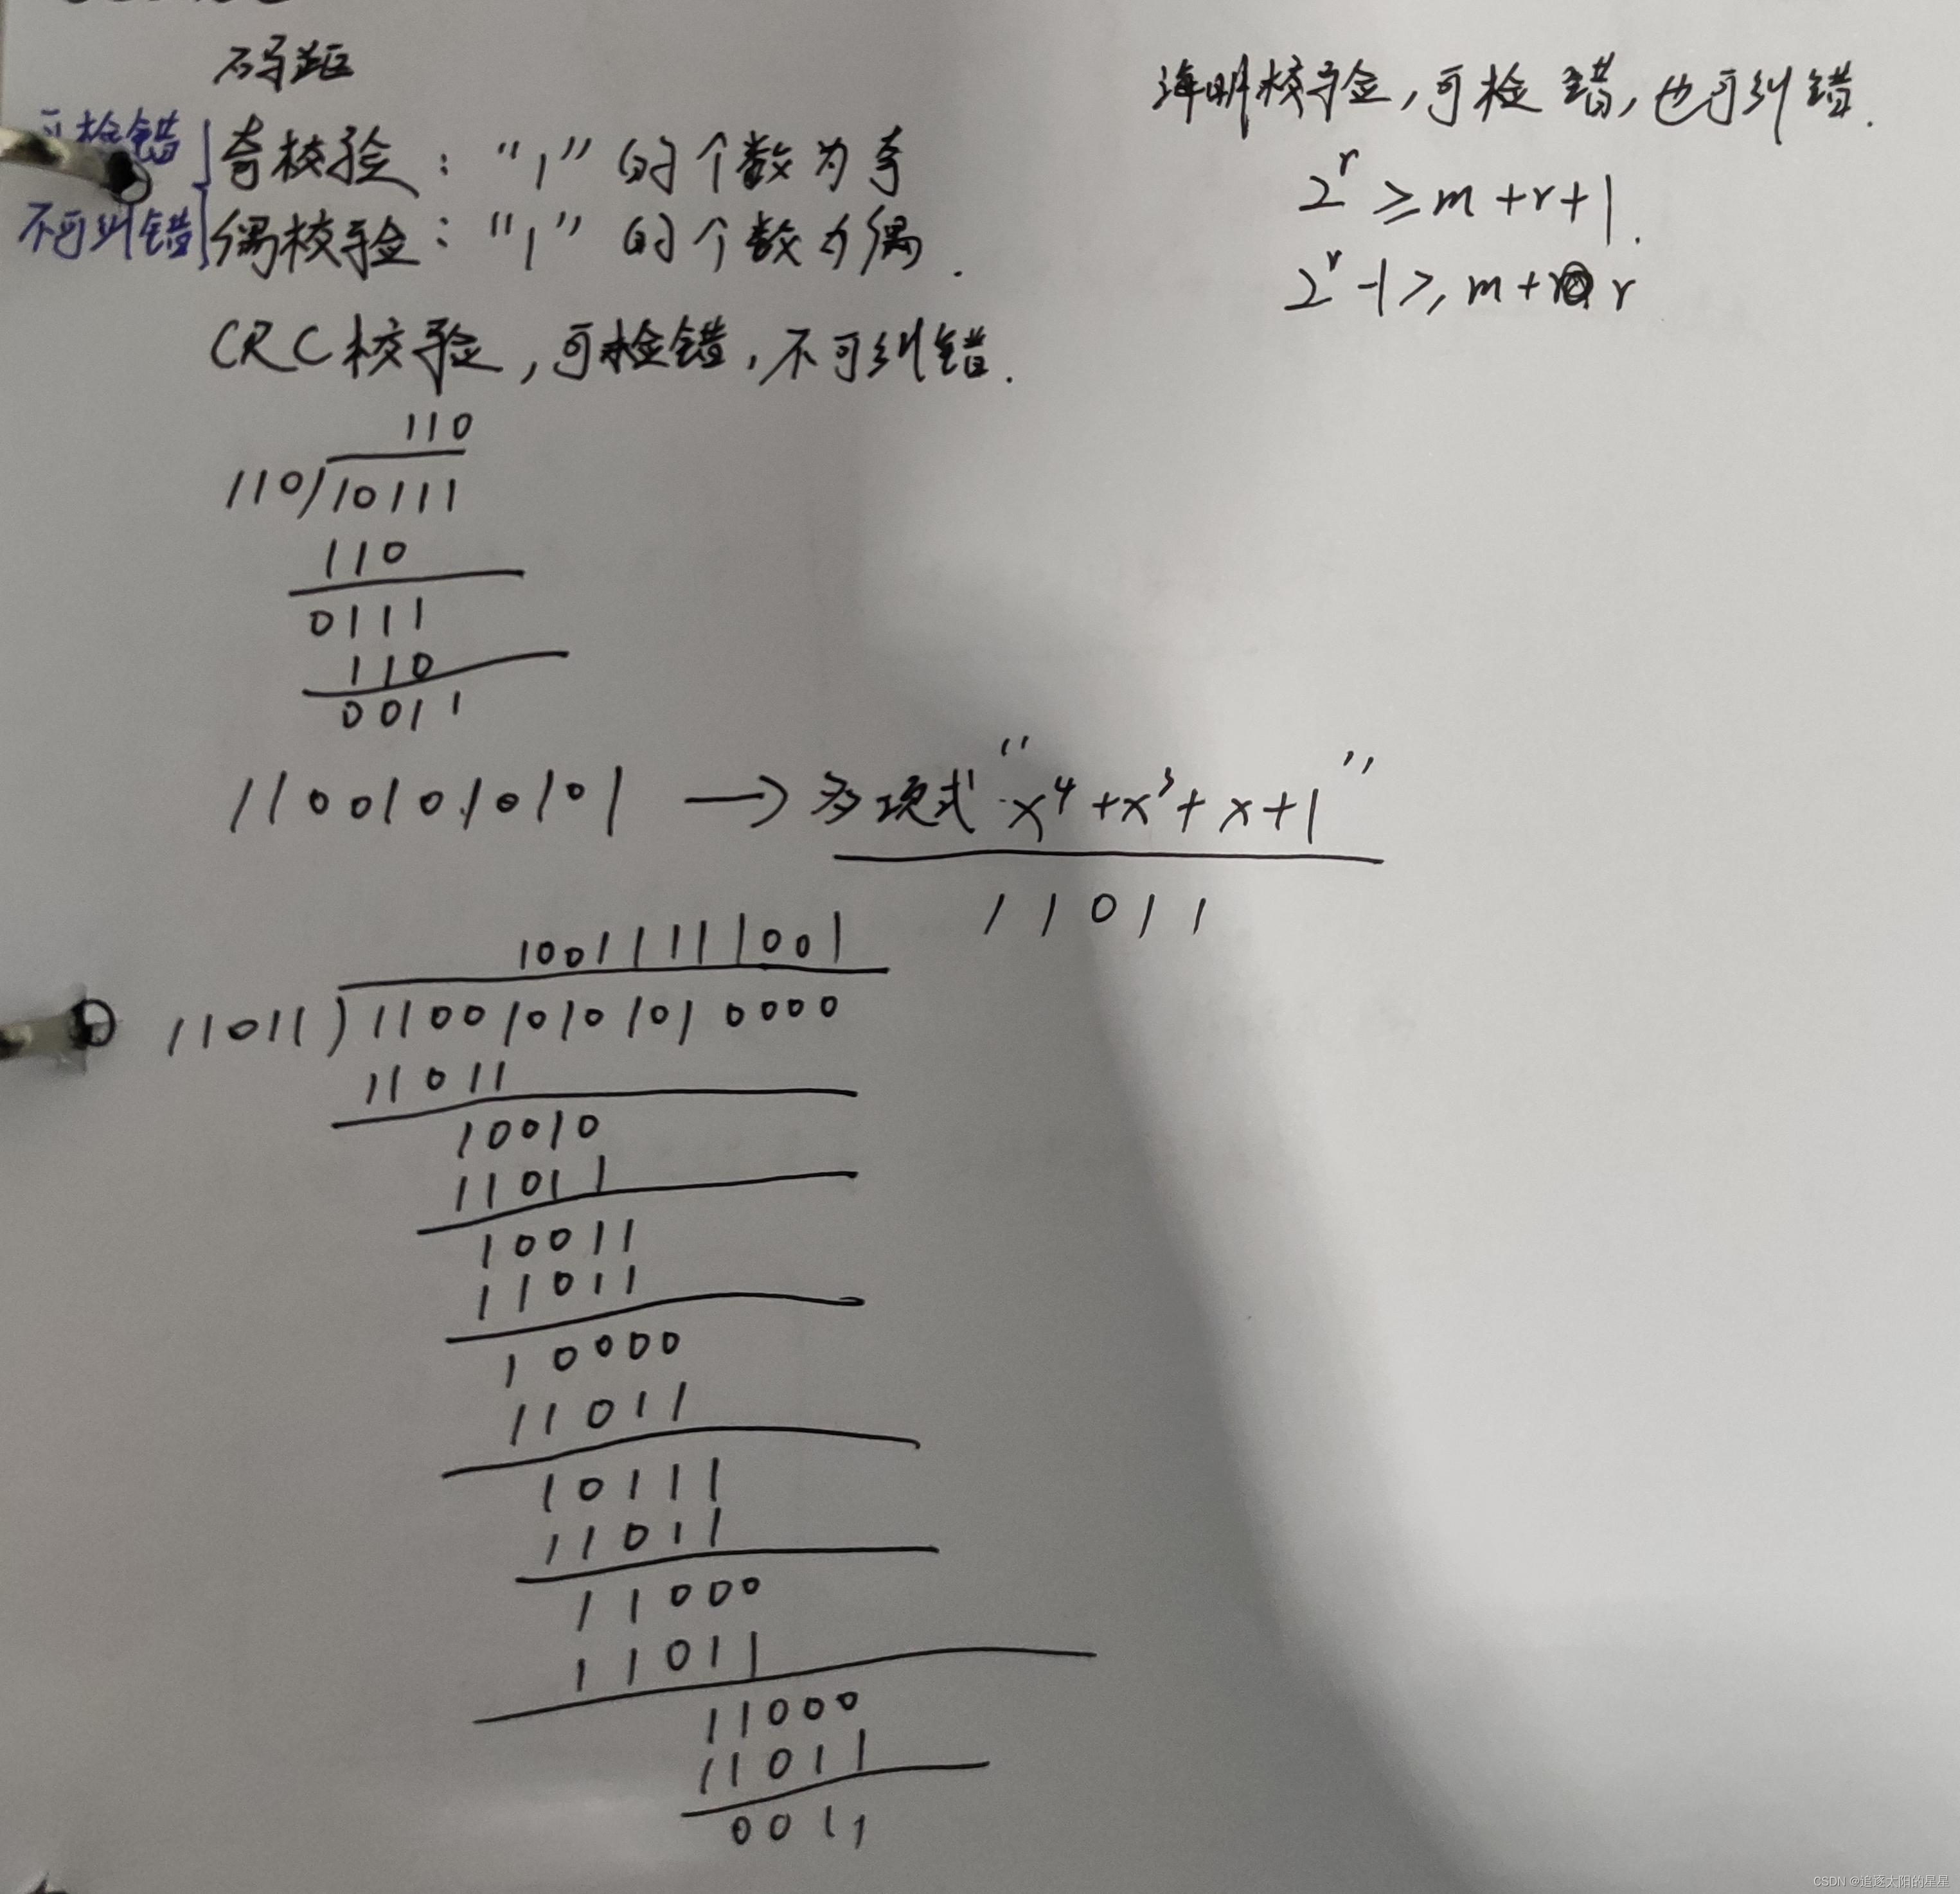 码距
可检错
奇校验："1"的个数为奇
不可纠错
偶校验："1"的个数为偶.
CRC校验,可检错,不可纠错.
110
110)10111
110
0111
110
0011
11001010101 → 多项式"x⁴+x³+x+1"
11011
10011111001
11011)110010101010000
11011
10010
11011
10011
11011
10000
11011
10111
11011
11000
11011
11000
11011
0011
海明校验,可检错,也可纠错.
2ʳ≥m+r+1.
2ʳ-1≥m+r
CSDN @追逐太阳的星星